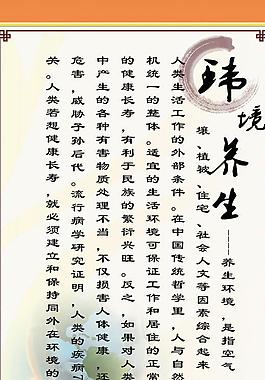 玮境养生
----养生环境，是指空气
壤、植被、住宅、社会人文等因素综合起来
人类生活工作的外部条件。在中国传统哲学里，人与自然
机统一的整体。适宜的生活环境可保证工作和居住的正常
的健康长寿，有利于民族的繁衍兴旺。反之，如果对人类
中产生的各种有害物质处理不当，不仅损害人体健康，还
危害，威胁子孙后代。流行病学研究证明，人类的疾病
关。人类若想健康长寿，就必须建立和保持同外在环境的